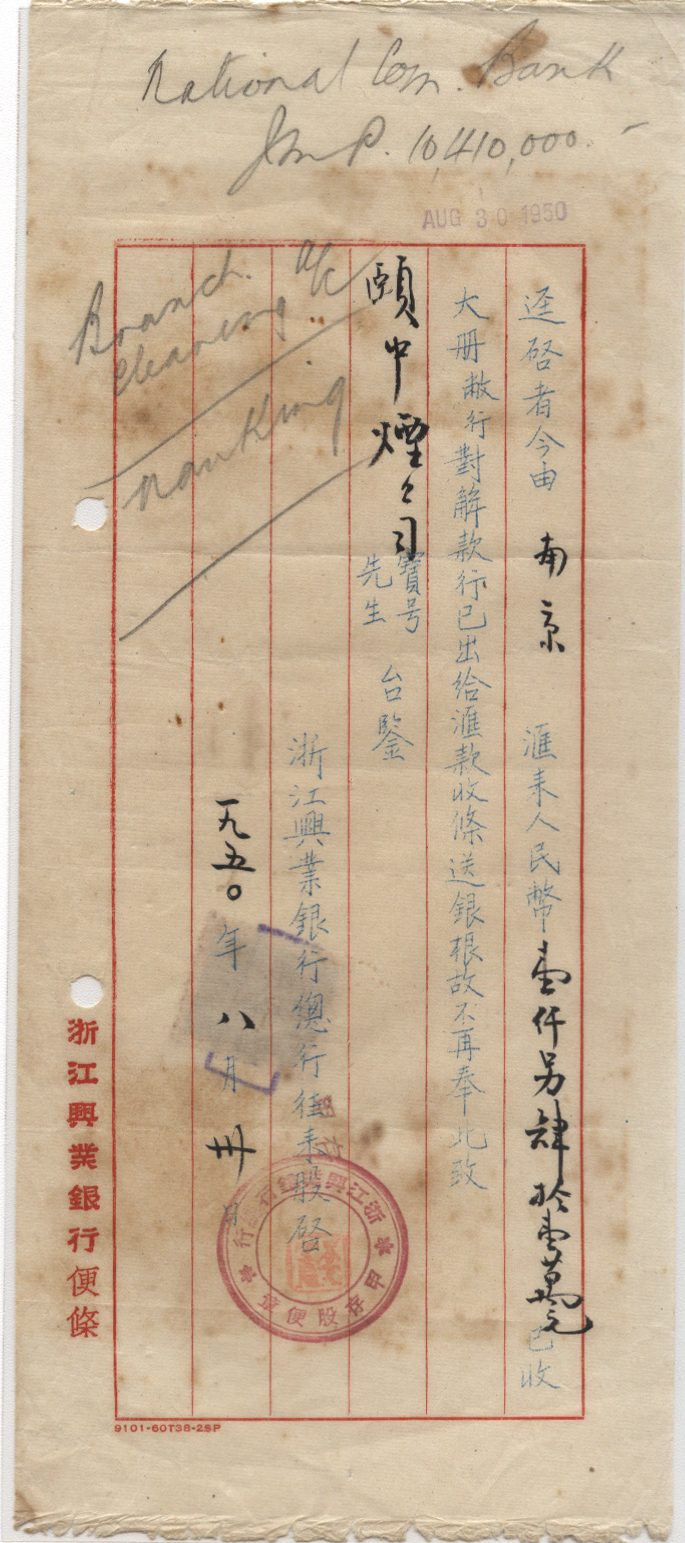 National Com. Bank
JmP. 10,410,000.-
AUG 30 1950
Branch a/c
Clearing
Nanking
逕啓者今由 南京 滙来人民幣壹仟另肆拾壹萬元已收
大册敝行對解款行已出给滙款收條送銀根故不再奉此致
頤中煙公司 寶号 先生 台鑒
浙江興業銀行總行往来股啓
一九五〇年八月卅日
浙江興業銀行便條
9101-60T38-2SP